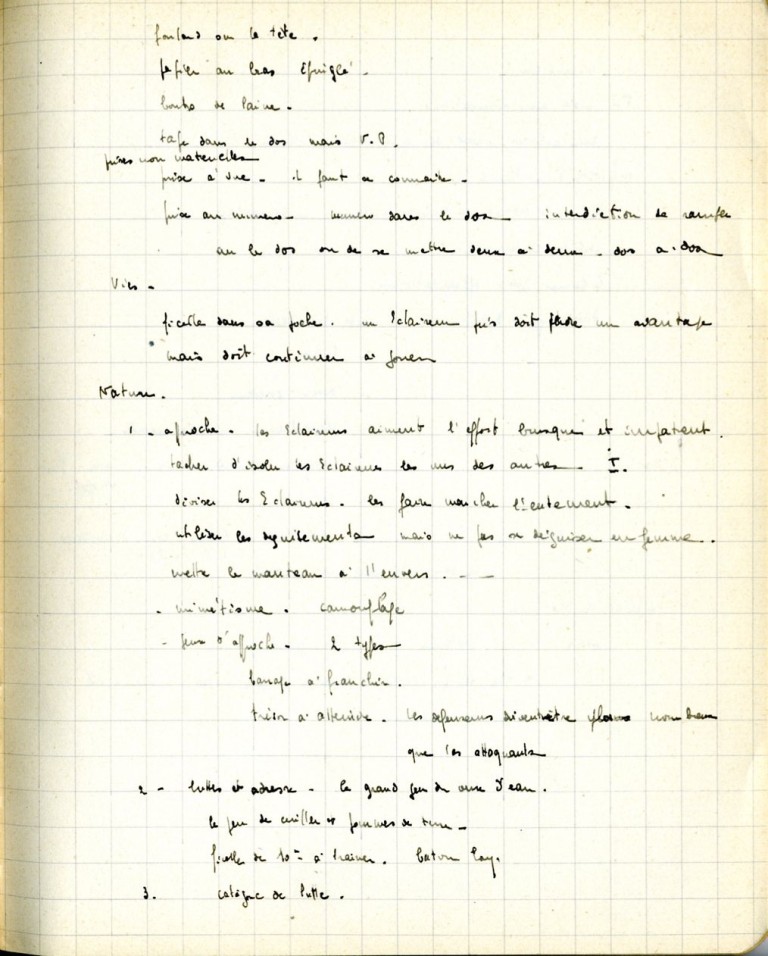 foulard sur la tête.
papier au bas épinglé.
de laine.
tape dans le dos mais V.P.
prises non materielles
prise à vue - il faut se connaitre -
prise au numero - numero dans le dos interdiction de ramper
sur le dos ou de se mettre deux à deux - dos a dos
Vies -
ficelle dans sa poche. un Eclaireur pris doit un avantage
mais doit continuer à jouer
Nature.
1 - aproche - les Eclaireurs aiment l'effort brusque et impatient.
tacher d'isoler les Eclaireurs les uns des autres I.
diviser les Eclaireurs. les faire marcher lentement.
utiliser les deguisements mais ne pas se déguiser en femme.
mettre le manteau à l'envers. -
- mimétisme. camouflage
- jeux d'approche - 2 types
barrage à franchir.
trésor à atteindre. les defenseurs être plus nombreux
que les attaquants
2 - luttes et adresse - le grand jeu du d'eau.
le jeu de cuiller et pommes de terre -
ficelle de 10m à trainer. baton
3. de lutte.